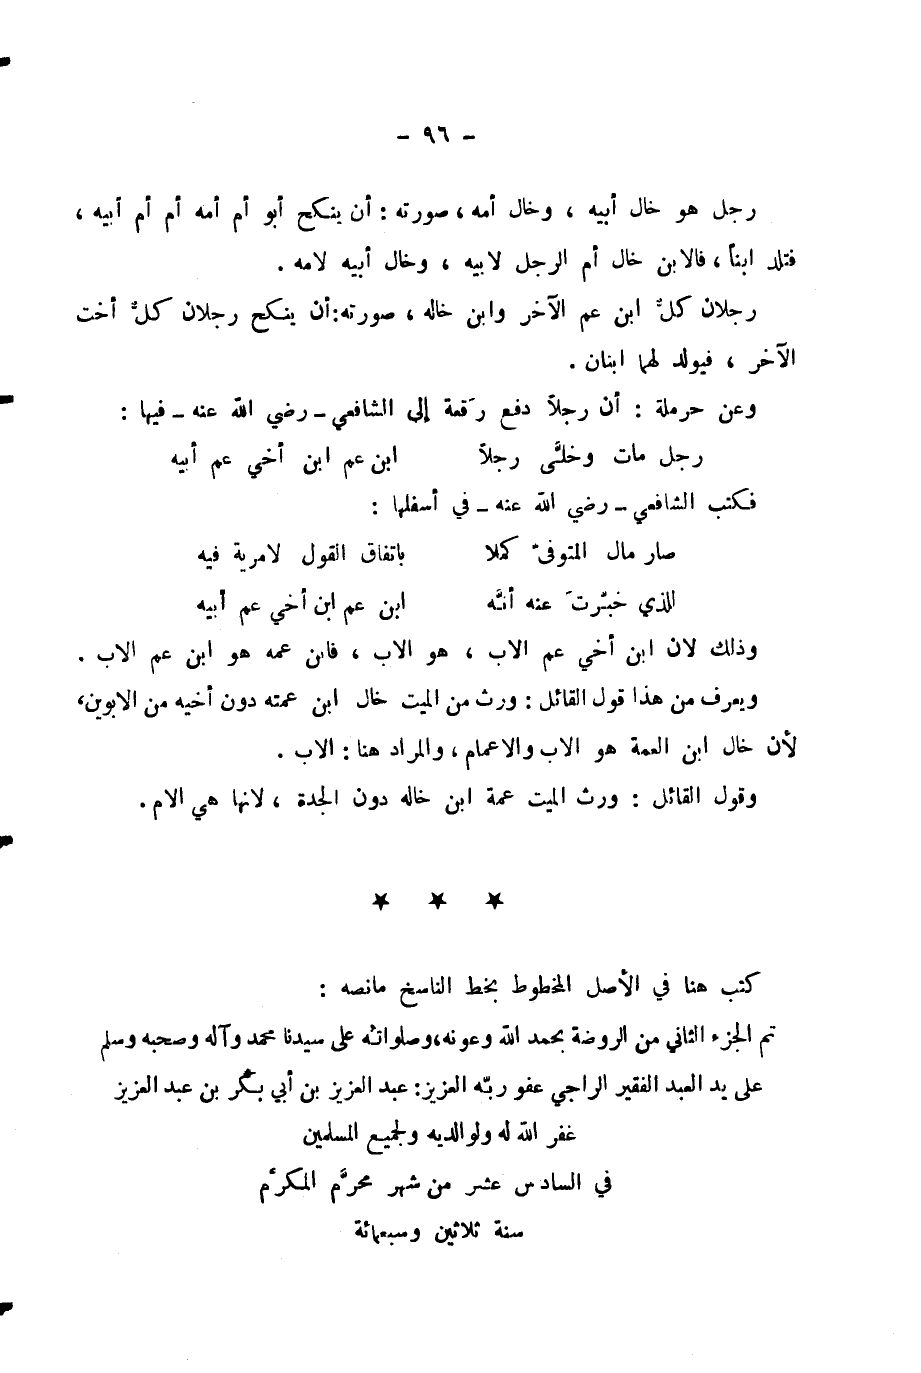 - ٩٦ -
رجل هو خال أبيه ، وخال أمه ، صورته : أن ينكح أبو أم أمه أم أم أبيه ،
فتلد ابناً ، فالابن خال أم الرجل لابيه ، وخال أبيه لامه .
رجلان كلٌّ ابن عم الآخر وابن خاله ، صورته:أن ينكح رجلان كلٌّ أخت
الآخر ، فيولد لهما ابنان .
وعن حرملة : أن رجلاً دفع رَقعة إلى الشافعي ـ رضي الله عنه ـ فيها :
رجل مات وخلَّى رجلاً ابن عم ابن أخي عم أبيه
فكتب الشافعي ـ رضي الله عنه ـ في أسفلها :
صار مال المتوفى كملا باتفاق القول لامرية فيه
للذي خبّرتَ عنه أنَّه ابن عم ابن أخي عم أبيه
وذلك لان ابن أخي عم الاب ، هو الاب ، فابن عمه هو ابن عم الاب .
ويعرف من هذا قول القائل : ورث من الميت خال ابن عمته دون أخيه من الابوين،
لأن خال ابن العمة هو الاب والاعمام ، والمراد هنا : الاب .
وقول القائل : ورث الميت عمة ابن خاله دون الجدة ، لانها هي الام .
★ ★ ★
كتب هنا في الأصل المخطوط بخط الناسخ مانصه :
تم الجزء الثاني من الروضة بحمد الله وعونه،وصلواته على سيدنا محمد وآله وصحبه وسلم
على يد العبد الفقير الراجي عفو ربّه العزيز: عبد العزيز بن أبي بكر بن عبد العزيز
غفر الله له ولوالديه ولجميع المسلمين
في السادس عشر من شهر محرَّم المكرَّم
سنة ثلاثين وسبعمائة